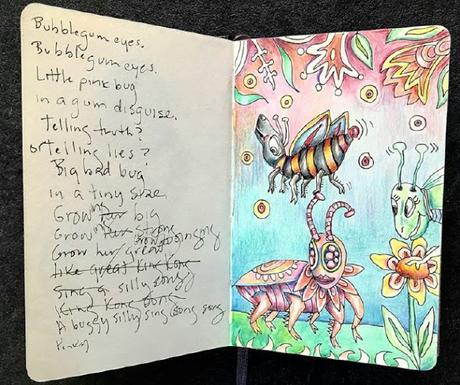 Bubblegum eyes.
Bubblegum eyes.
Little pink bug
in a gum disguise.
Telling truth?
or telling lies?
Big bad bug
in a tiny size.
Growing big
Grow strong
Grow her great
like great King Kong
Sing a silly song
King Kong Bong
A buggy silly sing song song